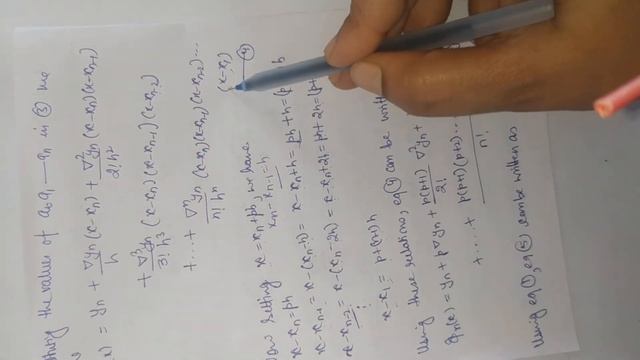 the values of a₀ a₁ --- aₙ in ③ we
(x) = yₙ + ∇yₙ/h (x-xₙ) + ∇²yₙ/2!h² (x-xₙ)(x-xₙ₋₁)
+ ∇³yₙ/3!h³ (x-xₙ)(x-xₙ₋₁)(x-xₙ₋₂)
+ ... + ∇ⁿyₙ/n!hⁿ (x-xₙ)(x-xₙ₋₁)(x-xₙ₋₂)...
(x-x₁)
④
setting x = xₙ+ph, we have
x-xₙ = ph xₙ-xₙ₋₁=h
x-xₙ₋₁ = x-(xₙ-h) = x-xₙ+h = ph+h =(p
x-xₙ₋₂ = x-(xₙ-2h) = x-xₙ+2h = ph+2h =(p+
x-x₁ = p+(n-1)h
Using these relations, eq ④ can be
(x) = yₙ + p∇yₙ + p(p+1)/2! ∇²yₙ +
+ ... + p(p+1)(p+2)... / n!
Using eq ①, eq ⑤ can be written as